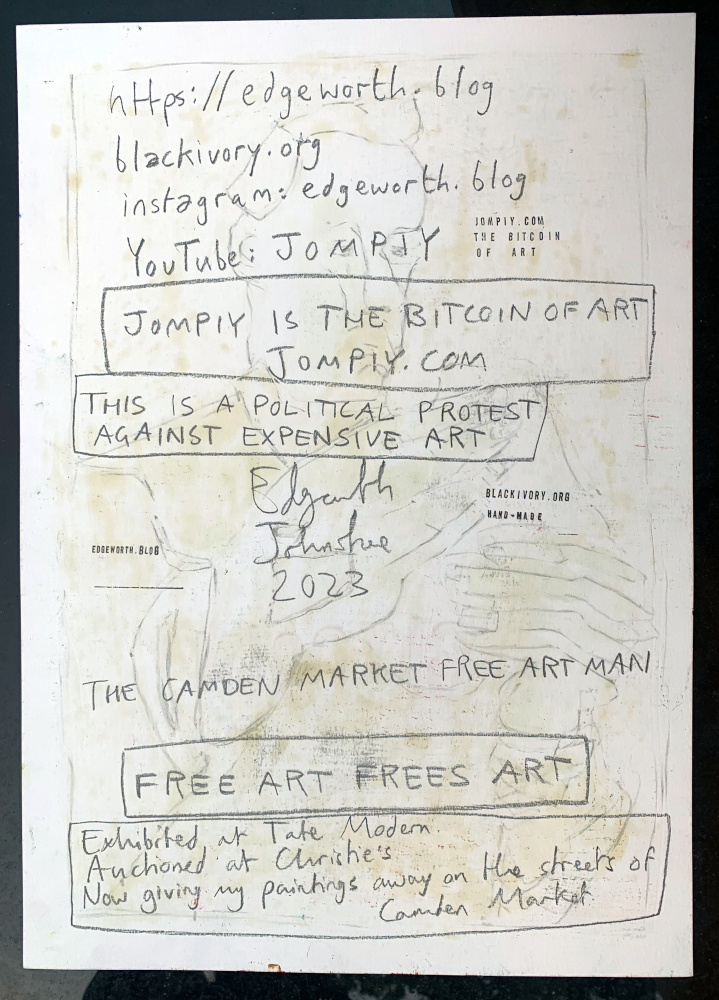 https://edgeworth.blog
blackivory.org
instagram: edgeworth.blog
YouTube: JOMPIY
JOMPIY.COM
THE BITCOIN
OF ART
JOMPIY IS THE BITCOIN OF ART
JOMPIY.COM
THIS IS A POLITICAL PROTEST
AGAINST EXPENSIVE ART
Edgeworth
Johnstone
2023
BLACKIVORY.ORG
HAND-MADE
EDGEWORTH.BLOG
THE CAMDEN MARKET FREE ART MAN
FREE ART FREES ART
Exhibited at Tate Modern.
Auctioned at Christie's
Now giving my paintings away on the streets of
Camden Market